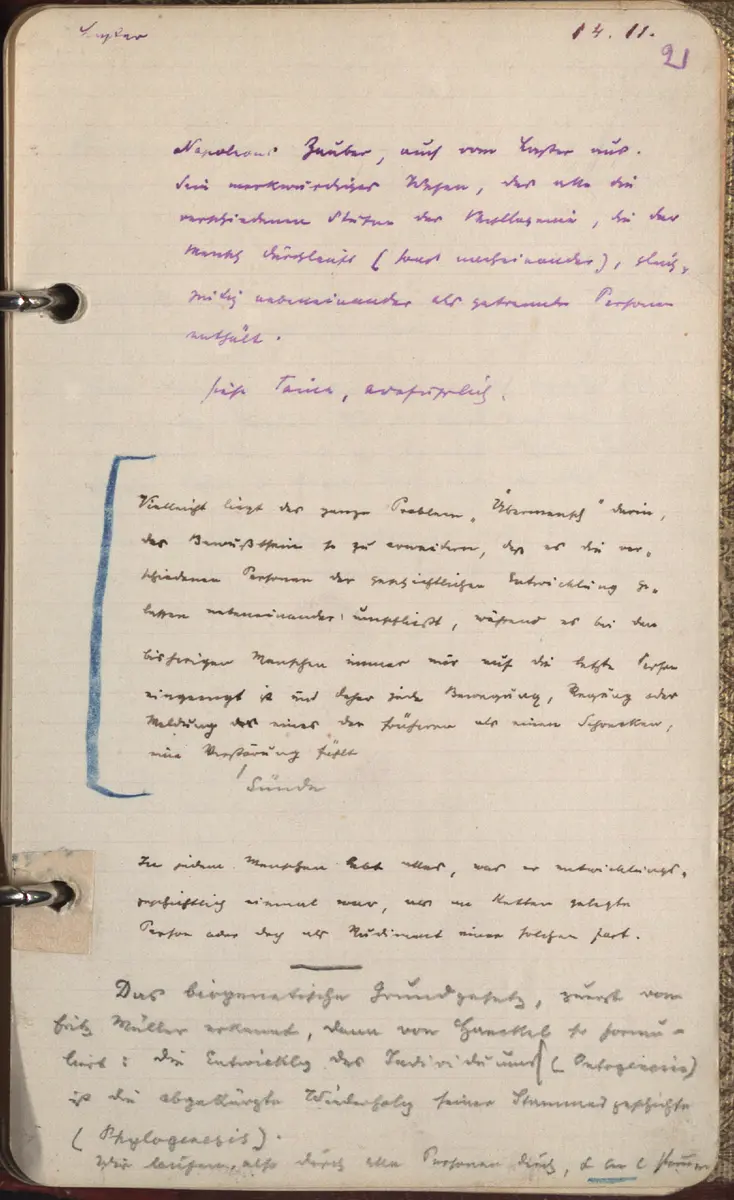 Laster
14. 11.
21
Napoleons Zauber, auch vom Laster aus.
Sein merkwürdiges Wesen, das alle die
verschiedenen Stufen der Phyllogenie, die der
Mensch durchläuft (sonst nacheinander), gleich-
zeitig nebeneinander als getrennte Personen
enthält.
siehe Taine, ausführlich.
Vielleicht liegt das ganze Problem „Übermensch" darin,
das Bewußtsein so zu erweitern, daß es die ver-
schiedenen Personen der geschichtlichen Entwicklung ge-
lassen nebeneinander umschließt, während es bei den
bisherigen Menschen immer nur auf die letzte Person
eingeengt ist und daher jede Bewegung, Regung oder
Meldung des eines der früheren als einen Schrecken,
eine Verstörung fühlt
Sünde
In jedem Menschen lebt alles, was er entwicklungs-
geschichtlich einmal war, als an Ketten gelegte
Person oder doch als Rudiment einer solchen fort.
Das biogenetische Grundgesetz, zuerst von
Fritz Müller erkannt, dann von Haeckel so formu-
liert: die Entwicklg des Individuums (Ontogenesis)
ist die abgekürzte Wiederholg seiner Stammesgeschichte
(Phylogenesis).
Wir laufen also durch alle Personen durch,